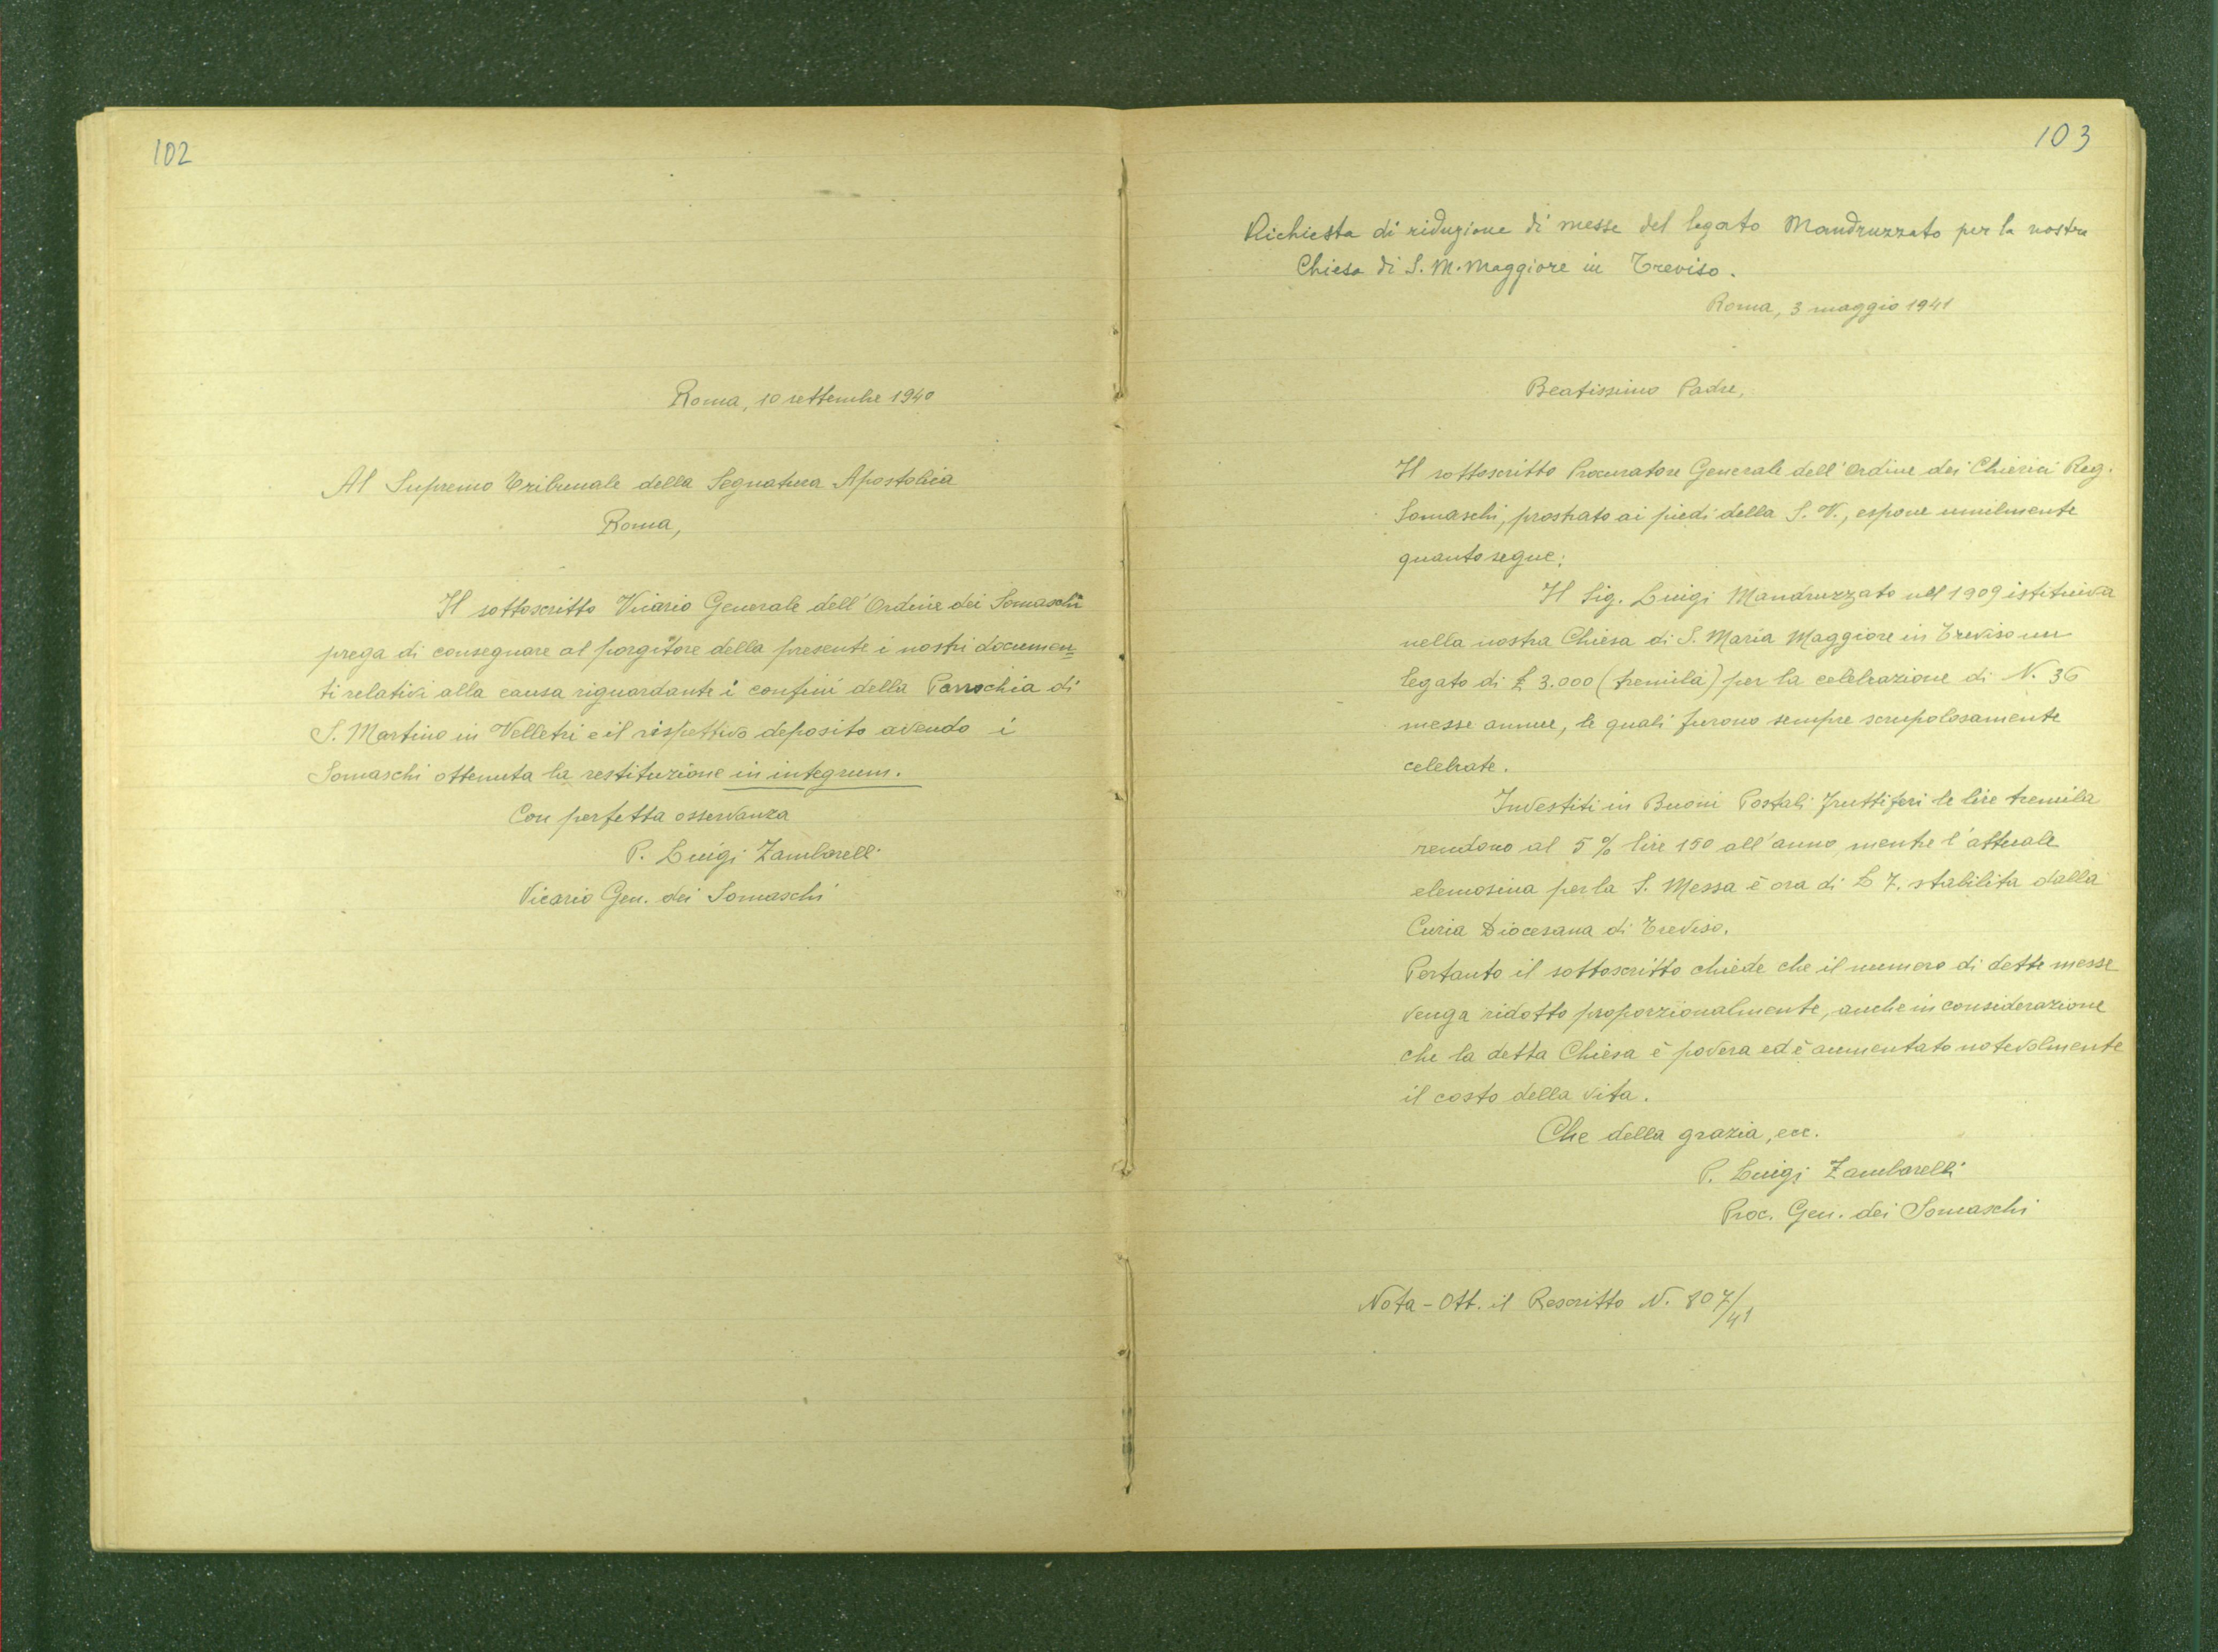 102
Roma, 10 settembre 1940
Al Supremo Tribunale della Segnatura Apostolica
Roma,
Il sottoscritto Vicario Generale dell'Ordine dei Somaschi
prega di consegnare al porgitore della presente i nostri documen=
ti relativi alla causa riguardante i confini della Parrochia di
S. Martino in Velletri e il rispettivo deposito avendo i
Somaschi ottenuta la restituzione in integrum.
Con perfetta osservanza
P. Luigi Zambarelli
Vicario Gen. dei Somaschi
103
Richiesta di riduzione di messe del legato Mandruzzato per la nostra
Chiesa di S. M. Maggiore in Treviso.
Roma, 3 maggio 1941
Beatissimo Padre,
Il sottoscritto Procuratore Generale dell'Ordine dei Chierici Reg.
Somaschi, prostrato ai piedi della S. V., espone umilmente
quanto segue:
Il Sig. Luigi Mandruzzato nel 1909 istituiva
nella nostra Chiesa di S. Maria Maggiore in Treviso un
legato di £ 3.000 (tremila) per la celebrazione di N. 36
messe annue, le quali furono sempre scrupolosamente
celebrate.
Investiti in Buoni Postali fruttiferi le lire tremila
rendono al 5 % lire 150 all'anno, mentre l'attuale
elemosina per la S. Messa è ora di L 7. stabilita dalla
Curia Diocesana di Treviso.
Pertanto il sottoscritto chiede che il numero di dette messe
venga ridotto proporzionalmente, anche in considerazione
che la detta Chiesa è povera ed è aumentato notevolmente
il costo della vita.
Che della grazia, ecc.
P. Luigi Zambarelli
Proc. Gen. dei Somaschi
Nota - Ott. il Rescritto N. 807/41